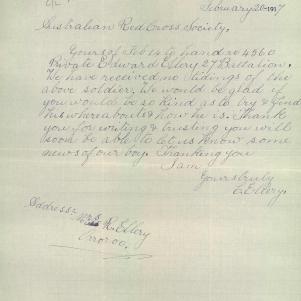 February 20 1917
Australian Red Cross Society.
Yours of Feb 15 to hand re 4360
Private Edward Ellery 27 Battalion.
We have received no tidings of the
above soldier. We would be glad if
you would be so kind as to try & find
his whereabouts & how he is. Thank
you for writing & trusting you will
soon be able to let us know some
news of our boy. Thanking you
I am
Yours truly
E. Ellery.
Address: Mrs R. Ellery
Orroroo.